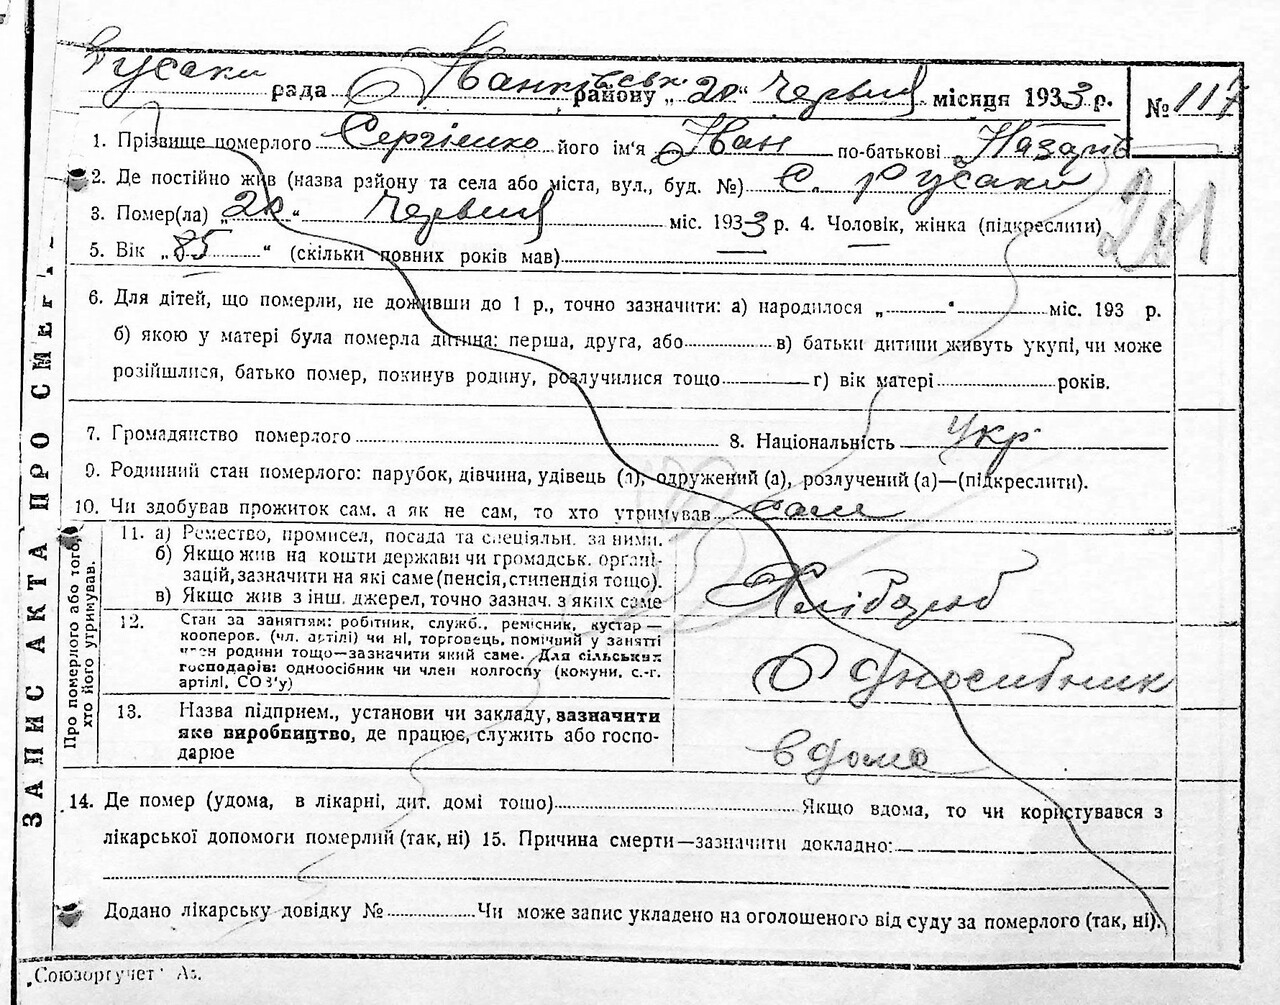 Русаки рада Іванківськ району „20“ Червня місяця 1933 р. № 117
1. Прізвище померлого Сергієнко його ім'я Іван по-батькові Назарів
2. Де постійно жив (назва району та села або міста, вул., буд. №) С. Русаки
3. Помер(ла) „20“ Червня міс. 1933 р. 4. Чоловік, жінка (підкреслити)
201
5. Вік „85“ (скільки повних років мав)
6. Для дітей, що померли, не доживши до 1 р., точно зазначити: а) народилося „ “ міс. 193 р.
б) якою у матері була померла дитина: перша, друга, або в) батьки дитини живуть укупі, чи може
розійшлися, батько помер, покинув родину, розлучилися тощо г) вік матері років.
7. Громадянство померлого 8. Національність Укр
9. Родинний стан померлого: парубок, дівчина, удівець (а), одружений (а), розлучений (а)—(підкреслити).
10. Чи здобував прожиток сам, а як не сам, то хто утримував сам
Про померлого або того, хто його утримував.
11. а) Ремество, промисел, посада та спеціяльн. за ними.
б) Якщо жив на кошти держави чи громадськ. органі-
зацій, зазначити на які саме (пенсія, стипендія тощо).
в) Якщо жив з інш. джерел, точно зазнач. з яких саме
Хлібороб
12. Стан за заняттям: робітник, служб., ремісник, кустар—
кооперов. (чл. артілі) чи ні, торговець, помічний у занятті
член родини тощо—зазначити який саме. Для сільських
господарів: одноосібник чи член колгоспу (комуни, с.-г.
артілі, СОЗ'у)
Односибник
13. Назва підприєм., установи чи закладу, зазначити
яке виробництво, де працює, служить або госпо-
дарює
вдома
14. Де помер (удома, в лікарні, дит. домі тощо) Якщо вдома, то чи користувався з
лікарської допомоги померлий (так, ні) 15. Причина смерти—зазначити докладно:
Додано лікарську довідку № Чи може запис укладено на оголошеного від суду за померлого (так, ні).
ЗАПИС АКТА ПРО СМЕР
„Союзоргучет“ Аз.